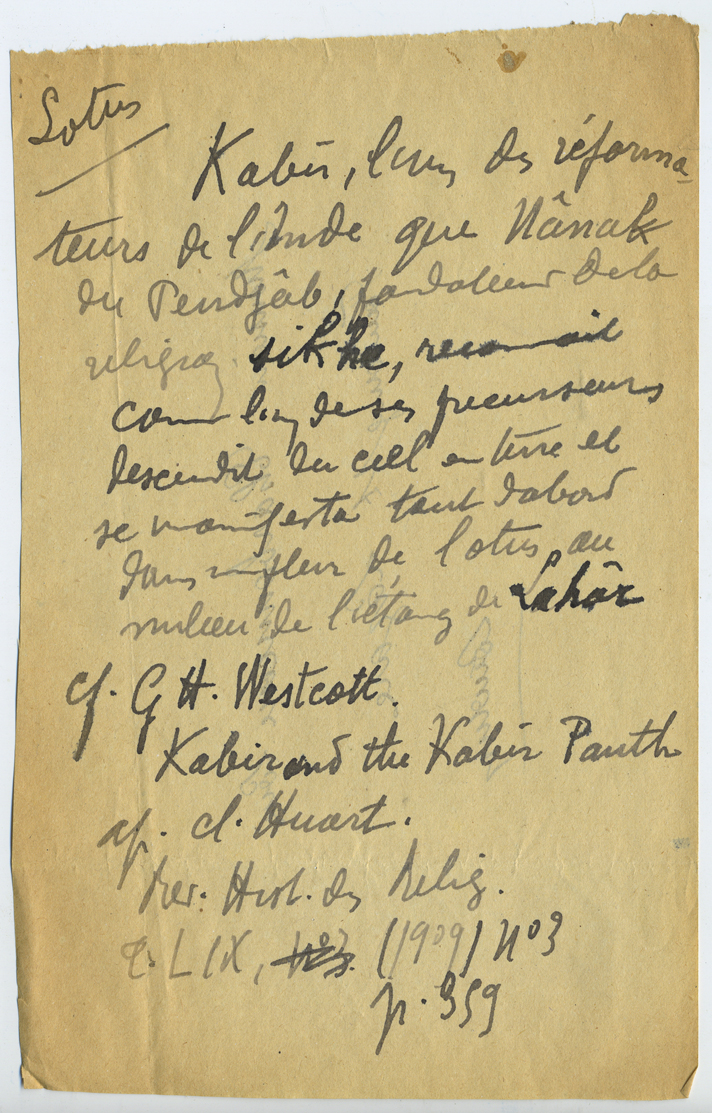 Lotus
Kabir, l'un des réforma-
teurs de l'Inde que Nânak
du Pendjâb, fondateur de la
religion sikhe, reconnait
comme l'un de ses précurseurs
descendit du ciel en terre et
se manifesta tout d'abord
dans une fleur de lotus, au
milieu de l'étang de Lahâr
cf. G H. Westcott.
Kabir and the Kabir Panth
ap. cl. Huart.
Rev. Hist. des Relig.
t. LIX, n°3. (1909) n°3
p. 359